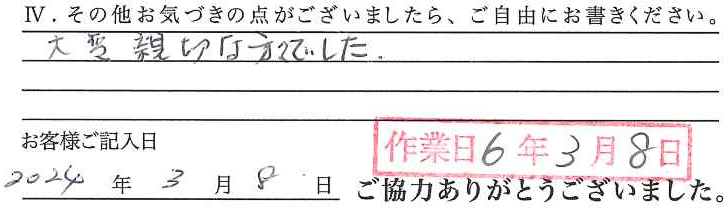 Ⅳ．その他お気づきの点がございましたら、ご自由にお書きください。
大変親切な方でした.
お客様ご記入日
作業日6年3月8日
2024年3月8日
ご協力ありがとうございました。